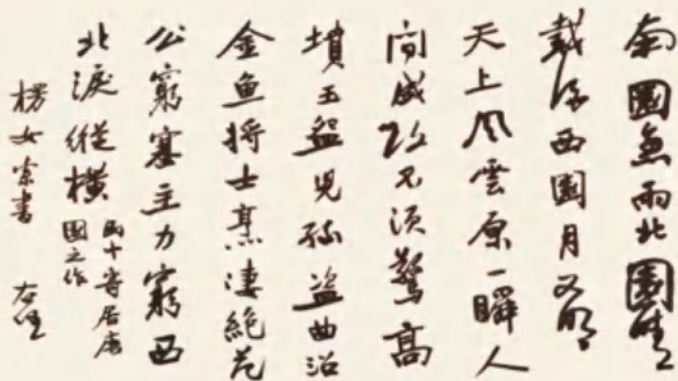 南園無雨北園晴
戰後西園月又明
天上風雲原一瞬人
間成敗不須驚高
墳玉盌兒孫盜曲沼
金魚將士烹凄絕范
公窮塞主力窮西
北淚縱橫
民十寄居唐
園之作
楞女索書
右任